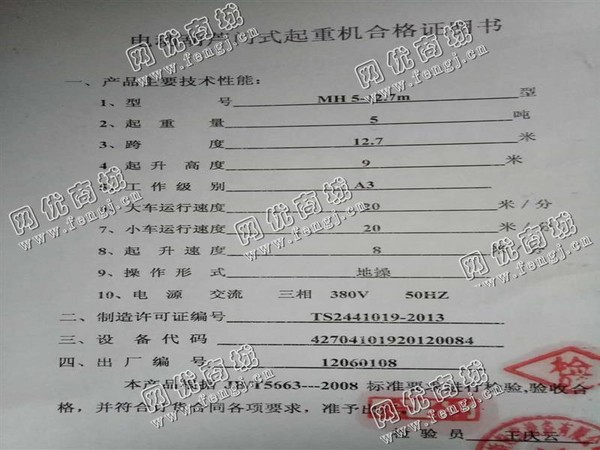 电动葫芦门式起重机合格证明书
一、产品主要技术性能：
1、型 号 MH 5-12.7m 型
2、起 重 量 5 吨
3、跨 度 12.7 米
4 起 升 高 度 9 米
5 工 作 级 别 A3
6 大车运行速度 20 米 / 分
7、小车运行速度 20 米 / 分
8、起 升 速 度 8
9、操 作 形 式 地操
10、电 源 交流 三相 380V 50HZ
二、制造许可证编号 TS2441019-2013
三、设 备 代 码 42704101920120084
四、出 厂 编 号 12060108
本产品根据 JB/T5663---2008 标准要求进行检验,验收合
格，并符合订货合同各项要求，准予出厂
检 验 员 王庆云
检
网优商城
www.fengj.cn
网优商城
www.fengj.cn
网优商城
www.fengj.cn
网优商城
www.fengj.cn
网优商城
www.fengj.cn
网优商城
www.fengj.cn